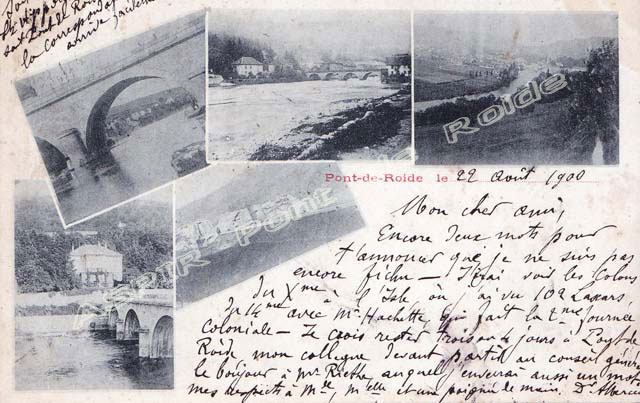 soit Pont de Roide
la correspondance
arrive
Pont-de-Roide le 22 août 1900
Mon cher ami,
Encore deux mots pour
t'annoncer que je ne suis pas
encore fichu – J'irai voir les Colons
du Xme à l'Isle où j'ai vu 102
du 14e avec Mr Hachette qui fait la 2me tournée
coloniale – Je crois rester trois ou 4 jours à Pont de
Roide mon collègue devant partir au conseil général
le bonjour à Mr Riethe auquel enverrai aussi un mot
mes respects à Mde, Melle et une poignée de main. Dr